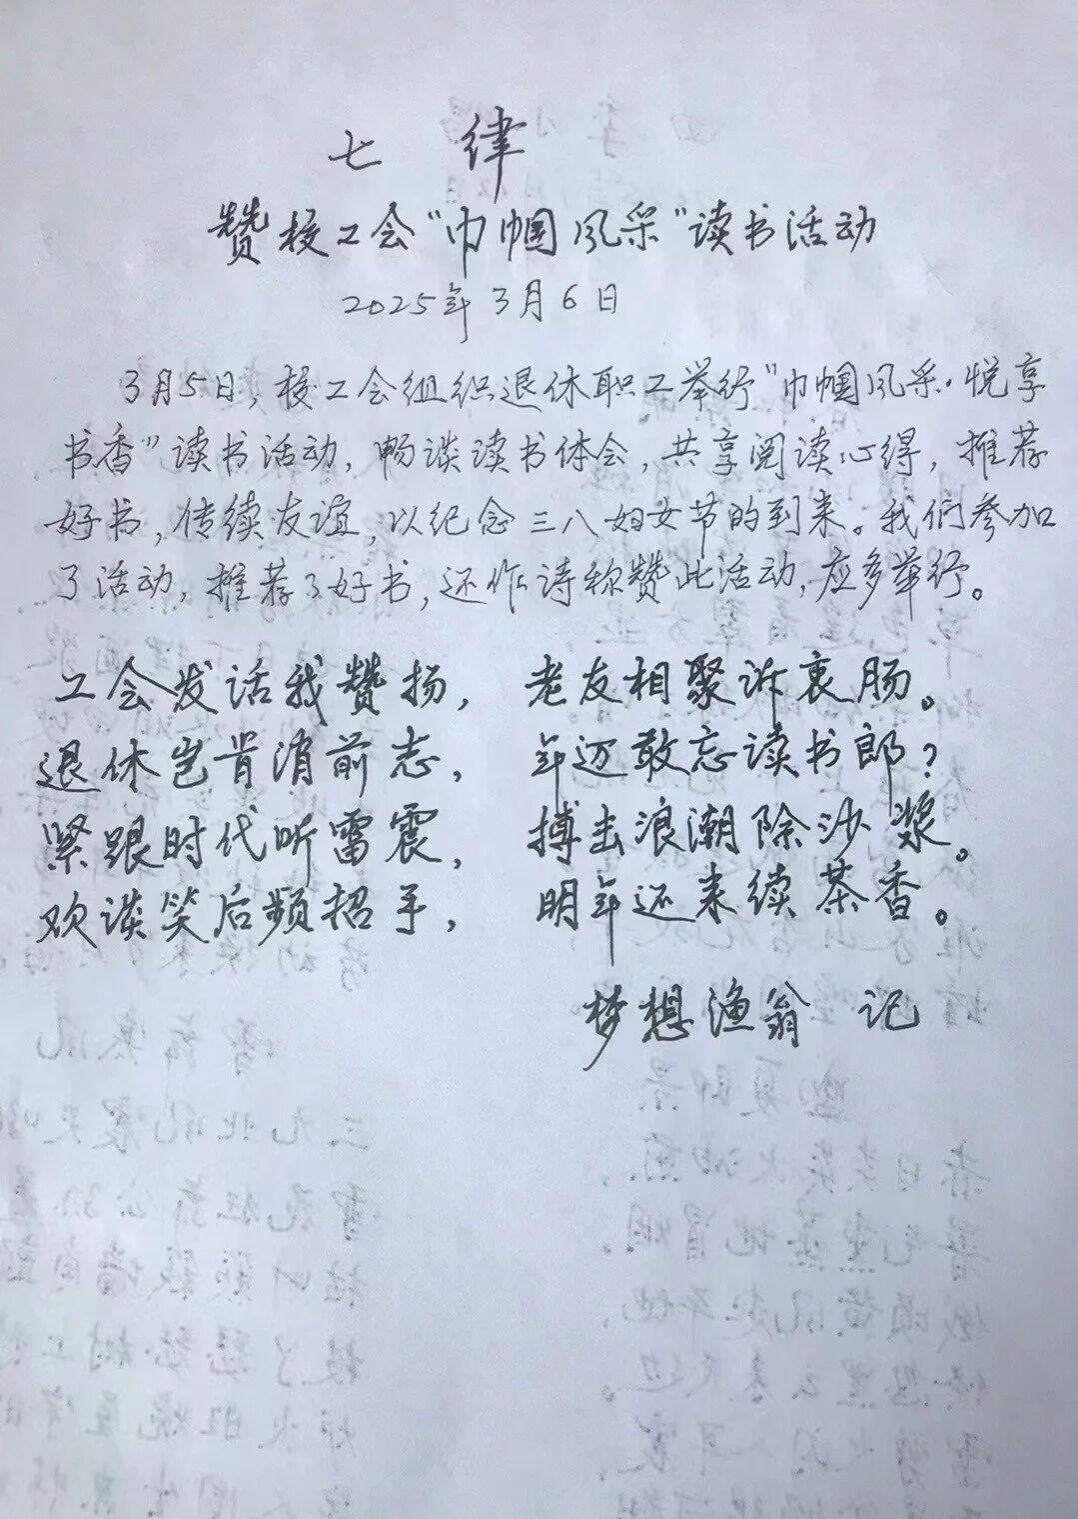 七 律
赞校工会“巾帼风采”读书活动
2025年3月6日
3月5日，校工会组织退休职工举行“巾帼风采·悦享
书香”读书活动，畅谈读书体会，共享阅读心得，推荐
好书，传续友谊，以纪念三八妇女节的到来。我们参加
了活动，推荐了好书，还作诗称赞此活动，应多举行。
工会发话我赞扬， 老友相聚诉衷肠。
退休岂肯消前志， 年迈敢忘读书郎？
紧跟时代听雷震， 搏击浪潮除沙浆。
欢谈笑后频招手， 明年还来续茶香。
梦想渔翁 记